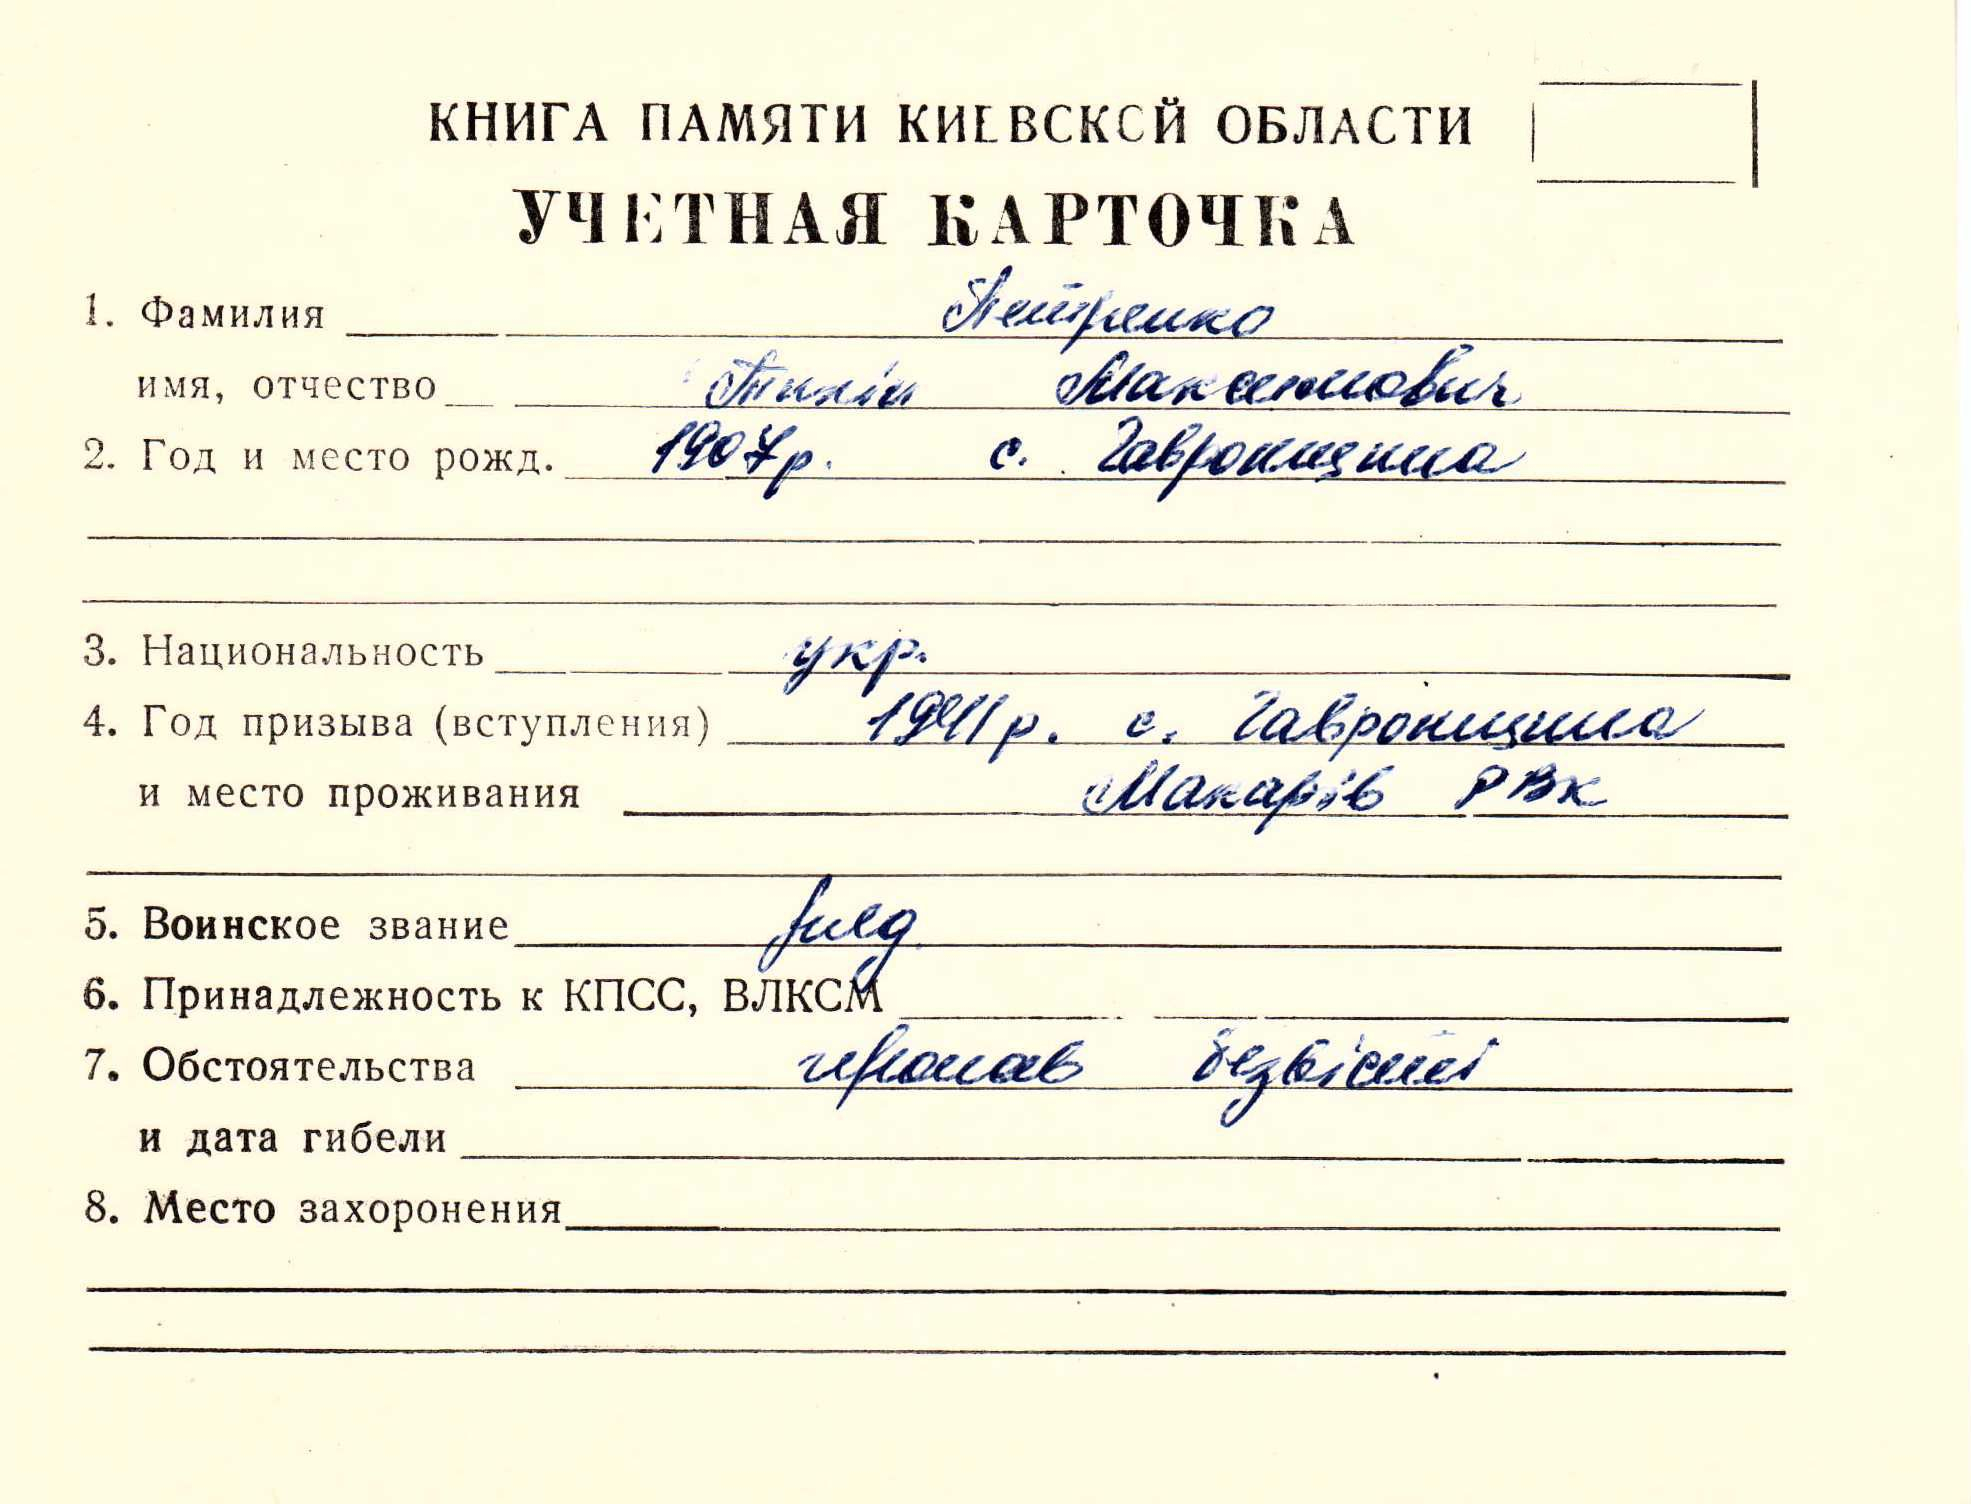 КНИГА ПАМЯТИ КИЕВСКОЙ ОБЛАСТИ
УЧЕТНАЯ КАРТОЧКА
1. Фамилия Петренко
имя, отчество Максимович
2. Год и место рожд. 1907р. с. Гавронщина
3. Национальность укр.
4. Год призыва (вступления) 1941р. с. Гавронщина
и место проживания Макарів РВК
5. Воинское звание
6. Принадлежность к КПСС, ВЛКСМ
7. Обстоятельства пропав безвісті
и дата гибели
8. Место захоронения